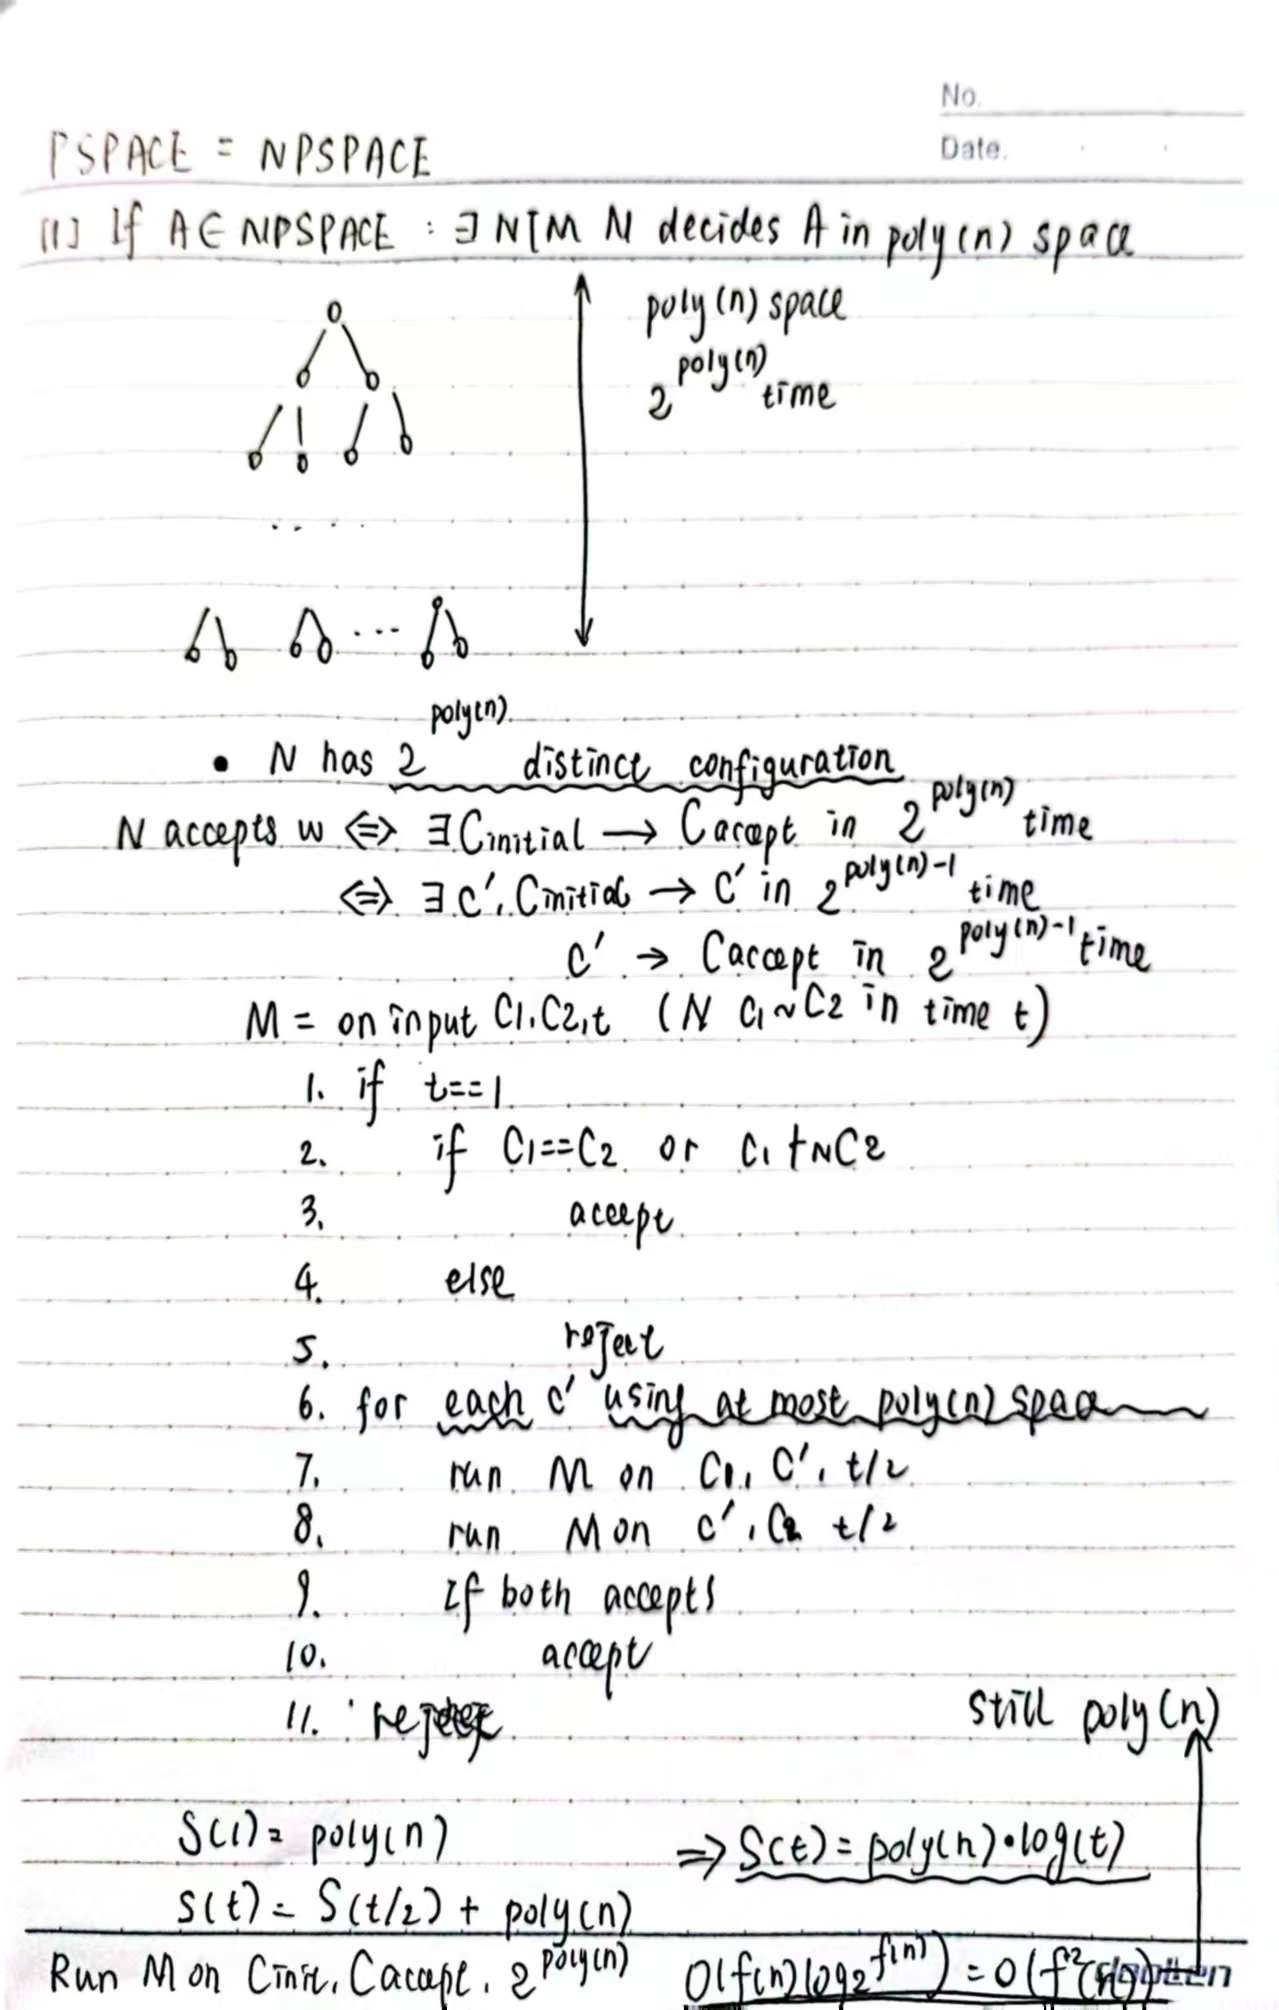 No.
Date.
PSPACE = NPSPACE
[1] If A∈ NPSPACE : ∃ NTM N decides A in poly(n) space
poly(n) space
2^poly(n) time
.....
...
• N has 2^poly(n) distinct configuration
N accepts w ⟺ ∃ Cinitial → Caccept in 2^poly(n) time
⟺ ∃ C', Cinitial → C' in 2^poly(n)-1 time
C' → Caccept in 2^poly(n)-1 time
M = on input C1, C2, t (N C1~C2 in time t)
1. if t==1
2. if C1==C2 or C1 ⊢N C2
3. accept
4. else
5. reject
6. for each C' using at most poly(n) space
7. run M on C1, C', t/2
8. run M on C', C2 t/2
9. If both accepts
10. accept
11. reject
still poly(n)
S(1) = poly(n)
⇒ S(t) = poly(n)•log(t)
S(t) = S(t/2) + poly(n)
Run M on Cinit, Caccept, 2^poly(n) O(f(n)log2^f(n)) = O(f²(n))